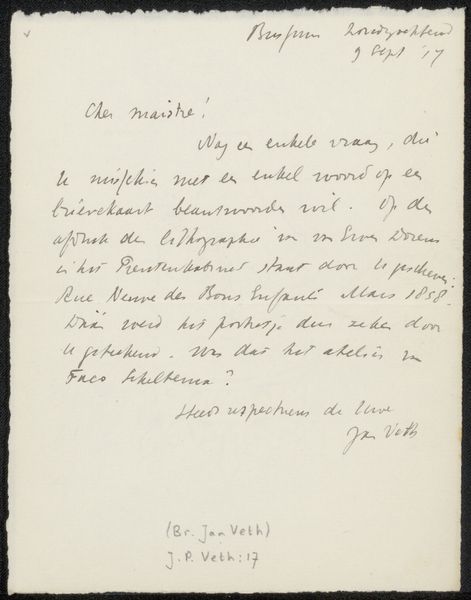 Bussum
9 Sept '17
Cher maistre!
Nog een enkele vraag, die
U misschien met een enkel woord op een
brievekaart beantwoorden wil. Op den
afdruk der lithographie van
in het Prentenkabinet staat door U geschreven:
Rue Neuve des Bons Enfants Mars 1858.
Dáár werd het portretje dus zeker door
U geteekend. Was dat het atelier van
Scheltema?
Steeds respectueus de Uwe
Jan Veth
(Br. Jan Veth)
J.P. Veth:17